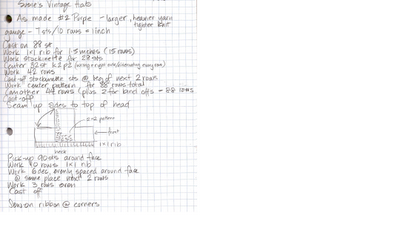 Susie's Vintage Hats
As made #2 Purple - larger, heavier yarn
tighter knit
gauge - 7 sts/10 rows = 1 inch
Cast on 88 st.
Work 1x1 rib for 1.5 inches (15 rows)
Work stockinette for 28 sts
center 32 st k2p2
Work 42 rows
Cast off stockinette sts @ beg of next 2 rows
Work center pattern for 88 rows total
(another 44 rows (plus 2 for bind offs = 88 rows
Cast off
Seam up sides to top of head
2x2 pattern
front
1x1 rib
neck
Pick up 90 sts around face
Work 10 rows 1x1 rib
Work 6 dec. evenly spaced around face
@ same place next 2 rows
Work 3 rows even
Cast off
Sew on ribbon @ corners